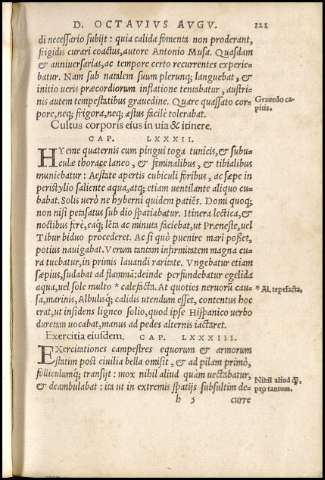 D. OCTAVIUS AVGV. 121
di necessario subijt: quia calida fomenta non proderant,
frigidis curari coactus, autore Antonio Musa. Quasdam
& anniuersarias, ac tempore certo recurrentes experie-
batur. Nam sub natalem suum plerunq; languebat, &
initio ueris præcordiorum inflatione tentabatur, austri-
nis autem tempestatibus grauedine. Quare quassato cor-
pore, neq; frigora, neq; æstus facilè tolerabat.
Grauedo ca-
pitis.
Cultus corporis eius in uia & itinere.
CAP. LXXXII.
HYeme quaternis cum pingui toga tunicis, & subu-
cula thorace laneo, & fœminalibus, & tibialibus
muniebatur: Aestate apertis cubiculi foribus, ac sæpe in
peristylio saliente aqua, atq; etiam uentilante aliquo cu-
babat. Solis uerò ne hyberni quidem patiēs. Domi quoq;
non nisi petasatus sub dio spatiabatur. Itinera lectica, &
noctibus ferè, eaq; lēta ac minuta faciebat, ut Præneste, uel
Tibur biduo procederet. Ac si quò peruenire mari posset,
potius nauigabat. Verùm tantam infirmitatem magna cu-
ra tuebatur, in primis lauandi raritate. Vngebatur etiam
sæpius, sudabat ad flammā: deinde perfundebatur egelida
aqua, uel sole multo * calefacta. At quoties neruorū cau-
* Al. tepefacta.
sa, marinis, Albulisq; calidis utendum esset, contentus hoc
erat, ut insidens ligneo solio, quod ipse Hispanico uerbo
duretum uocabat, manus ad pedes alternis iactaret.
Exercitia eiusdem. CAP. LXXXIII.
EXercitationes campestres equorum & armorum
statim post ciuilia bella omisit, & ad pilam primò,
folliculumq; transijt: mox nihil aliud quàm uectabatur,
Nihil aliud q̃,
pro tantum.
& deambulabat: ita ut in extremis spatijs subsultim de-
h 3 curre